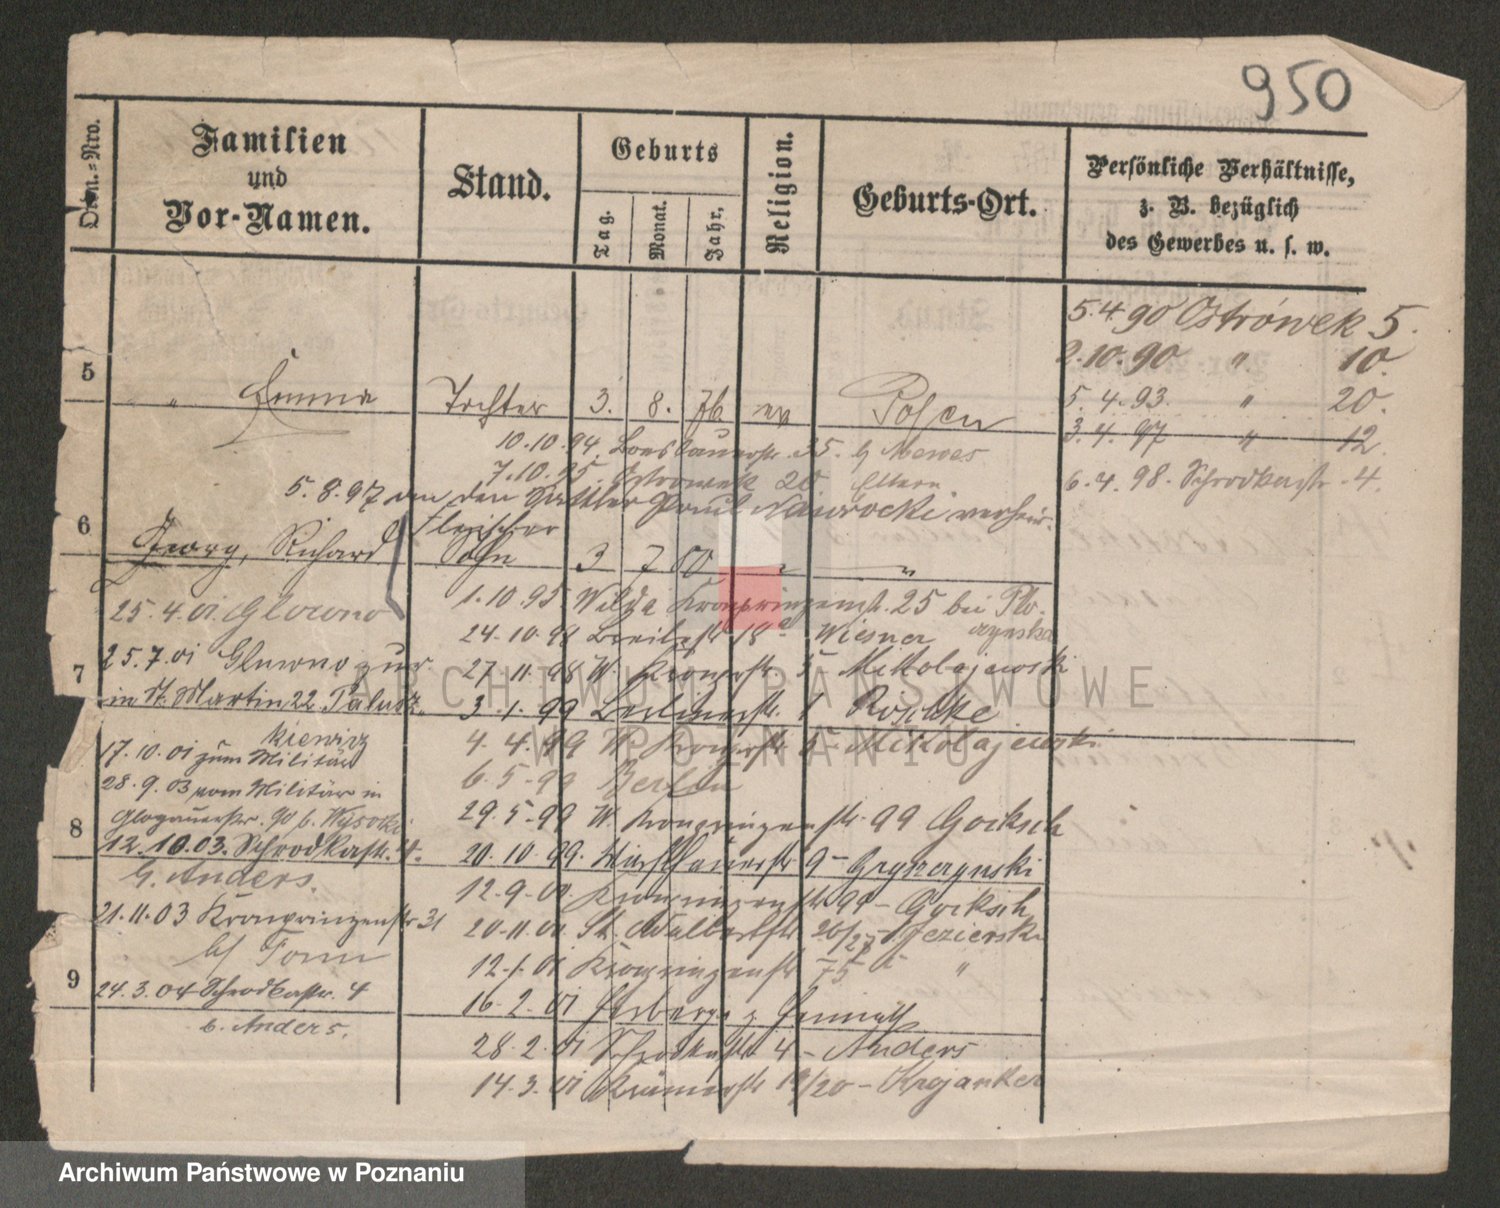 950
Ordn.=Nro.
Familien
und
Vor-Namen.
Stand.
Geburts
Tag.
Monat.
Jahr,
Religion.
Geburts-Ort.
Persönliche Verhältnisse,
z. B. bezüglich
des Gewerbes u. s. w.
5.4.90 Ostrówek 5.
2.10.90 " 10.
5.4.93. " 20.
3.4.97 " 12.
6.4.98. Schrodkastr. 4.
5
" Emma Tochter 3. 8. 76 ev Posen
10.10.94. 35. b/ Mewes
7.10.95. Ostrowek 20 Eltern.
5.8.97 an den Sattler Paul Nawrocki verheir.
6
Fleischer
Georg, Richard Sohn 3 7 80 " "
25.4.01 Glowno
25.7.01 Glowno zur
in St. Martin 22 Palusz-
kiewicz
17.10.01 zum Militär
28.9.03 vom Militär in
Glogauerstr. 90 b. Wysocki
12.10.03. Schrodkastr. 4.
G. Anders.
21.11.03 Kronprinzenstr 31
b/ Tomm
24.3.04 Schrodkastr. 4
b. Anders.
7
8
9
1.10.95. Wilda Kronprinzenstr. 25 bei Plo-
rynska
24.10.98 18a Wiesner
27.11.98 W. Kronprstr. 5 Mikolajewski
3.1.99 Berlinerstr. 1 Roschke
4.4.99 W. Kronprstr. 5 - Mikolajewski
6.5.99 Berlin
29.5.99 W. Kronprinzenstr. 99 Goiksch
20.10.99. 9 - Gryszczynski
12.9.00. Kronprinzenstr 99 - Goiksch
20.11.00. St. Adalbertstr 26/27 - Jezierski
12.1.01 Kronprinzenstr 75 - "
16.2.01 Herberge z Heimath
28.2.01 Schrodkastr 4 - Anders
14.3.01 Krämerstr 19/20 - Krojanker
ARCHIWUM PAŃSTWOWE
W POZNANIU
Archiwum Państwowe w Poznaniu